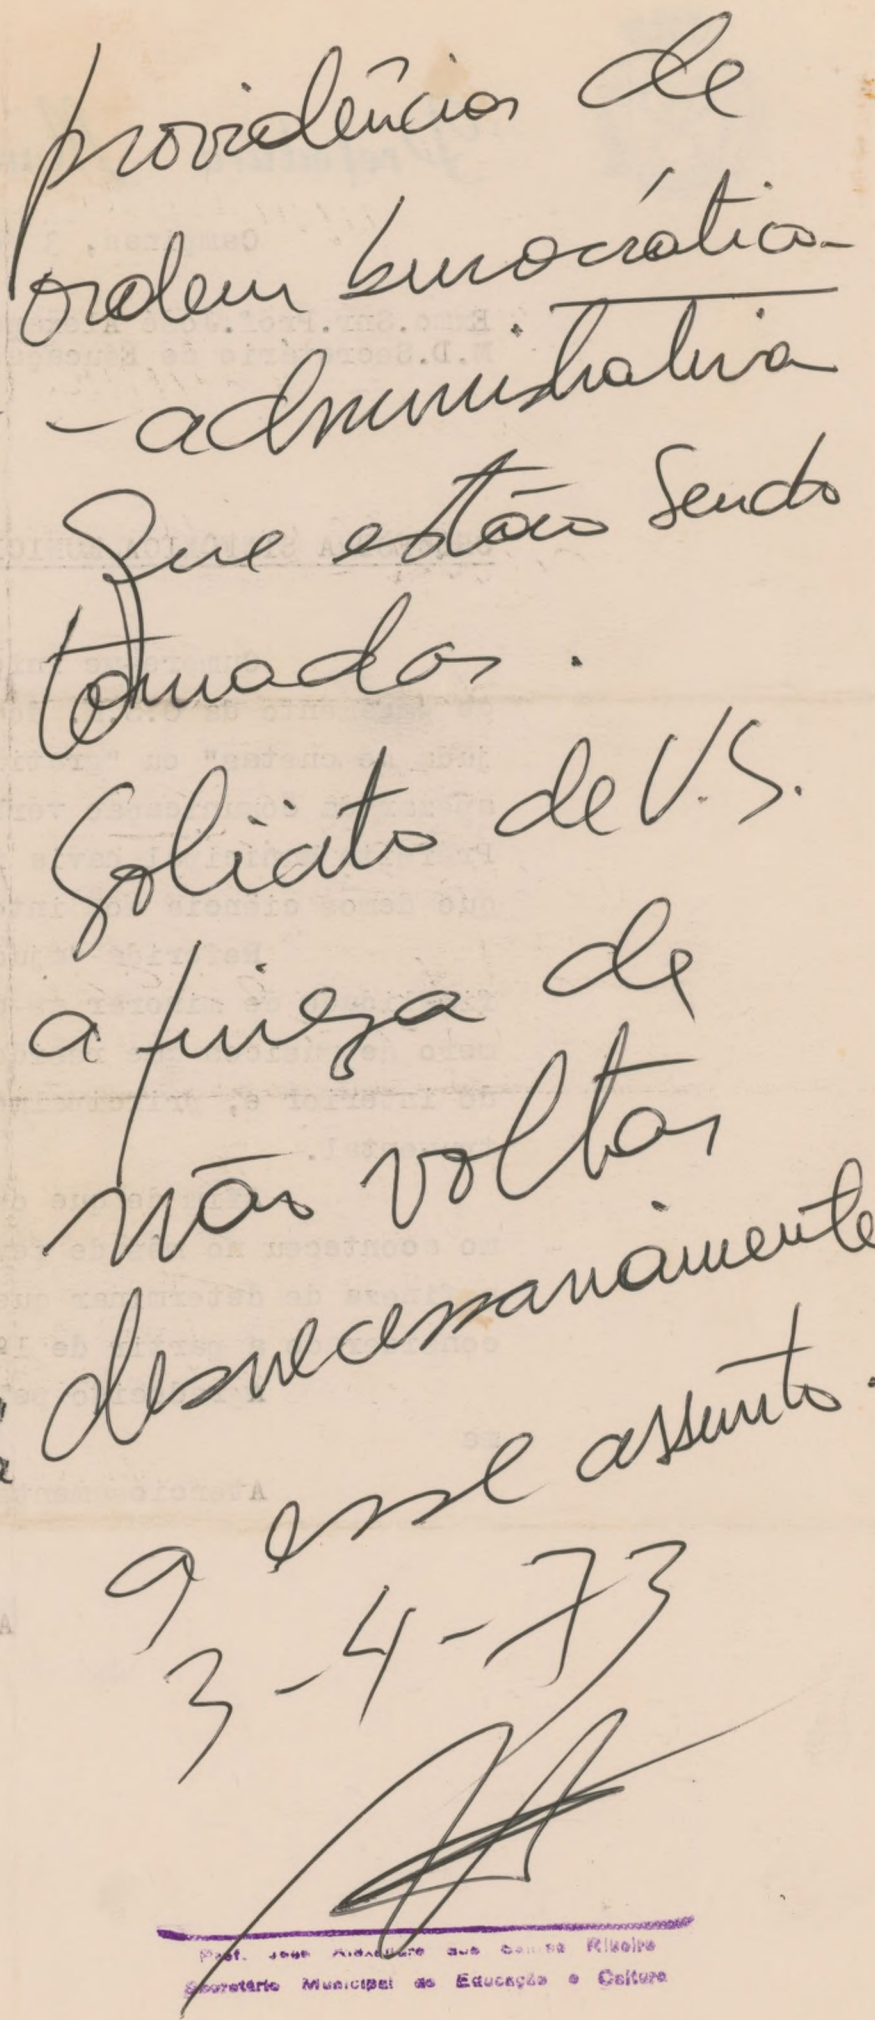 providências de
ordem burocrático-
-administrativa
que estão sendo
tomadas.
Solicito de V.S.
a fineza de
não voltar
desnecessariamente
a esse assunto.
3-4-73
Prof. José Alexandre dos Santos Ribeiro
Secretário Municipal de Educação e Cultura